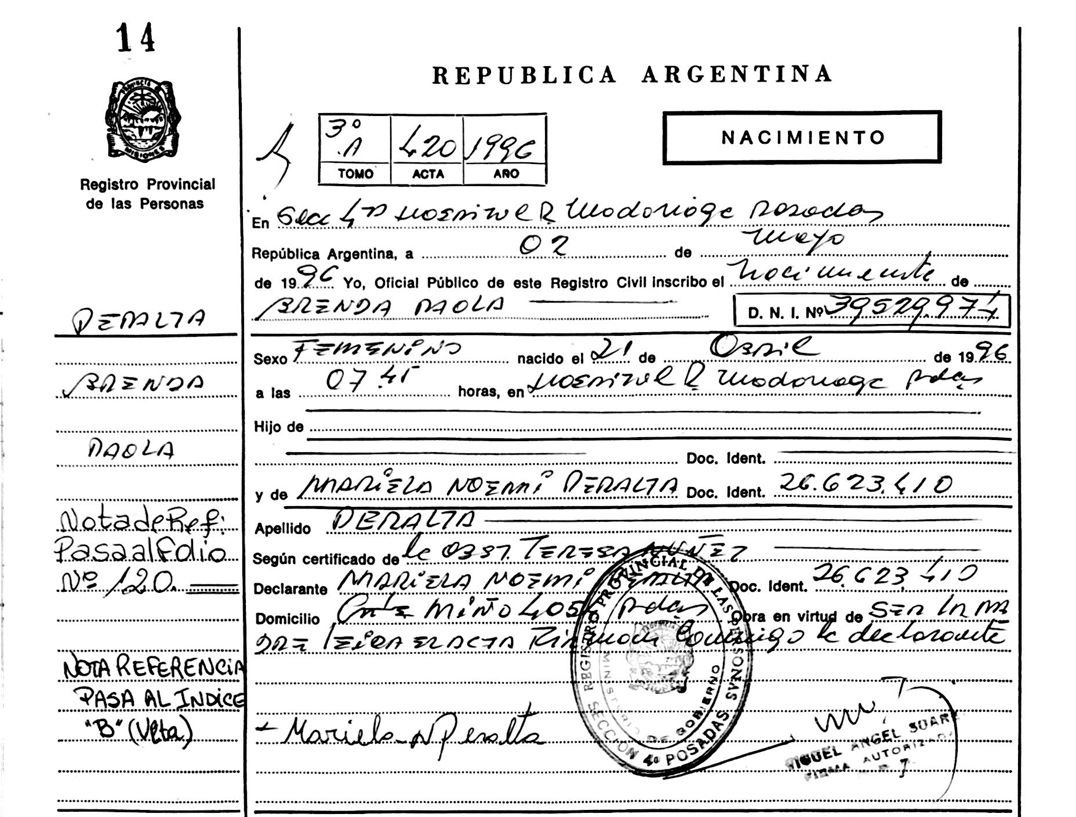 14
REPUBLICA ARGENTINA
3º A 420 1996
TOMO ACTA AÑO
NACIMIENTO
Registro Provincial
de las Personas
En Secc 4ta Hospital R Madariaga Posadas
República Argentina, a 02 de Mayo
de 1996 Yo, Oficial Público de este Registro Civil inscribo el Nacimiento de
BRENDA PAOLA D. N. I. Nº 39529974
PERALTA
Sexo FEMENINO nacido el 21 de Abril de 1996
BRENDA
a las 07.45 horas, en Hospital R Madariaga Pdas
Hijo de
PAOLA
Doc. Ident.
y de MARIELA NOEMI PERALTA Doc. Ident. 26.623.410
Apellido PERALTA
Nota de Ref:
Pasa al Folio
Nº 120.
Según certificado de la Obst. TERESA NUÑEZ
Declarante MARIELA NOEMI PERALTA Doc. Ident. 26.623.410
Domicilio MIÑO 405 Pdas Obra en virtud de SER LA MA
DRE LEIDA EL ACTA conmigo la declarante
NOTA REFERENCIA
PASA AL INDICE
"B" (Vlta)
Mariela N Peralta
REGISTRO PROVINCIAL DE LAS PERSONAS
MINISTERIO DE GOBIERNO
SECCIÓN 4º POSADAS
MIGUEL ANGEL SUAR
FIRMA AUTORIZADA